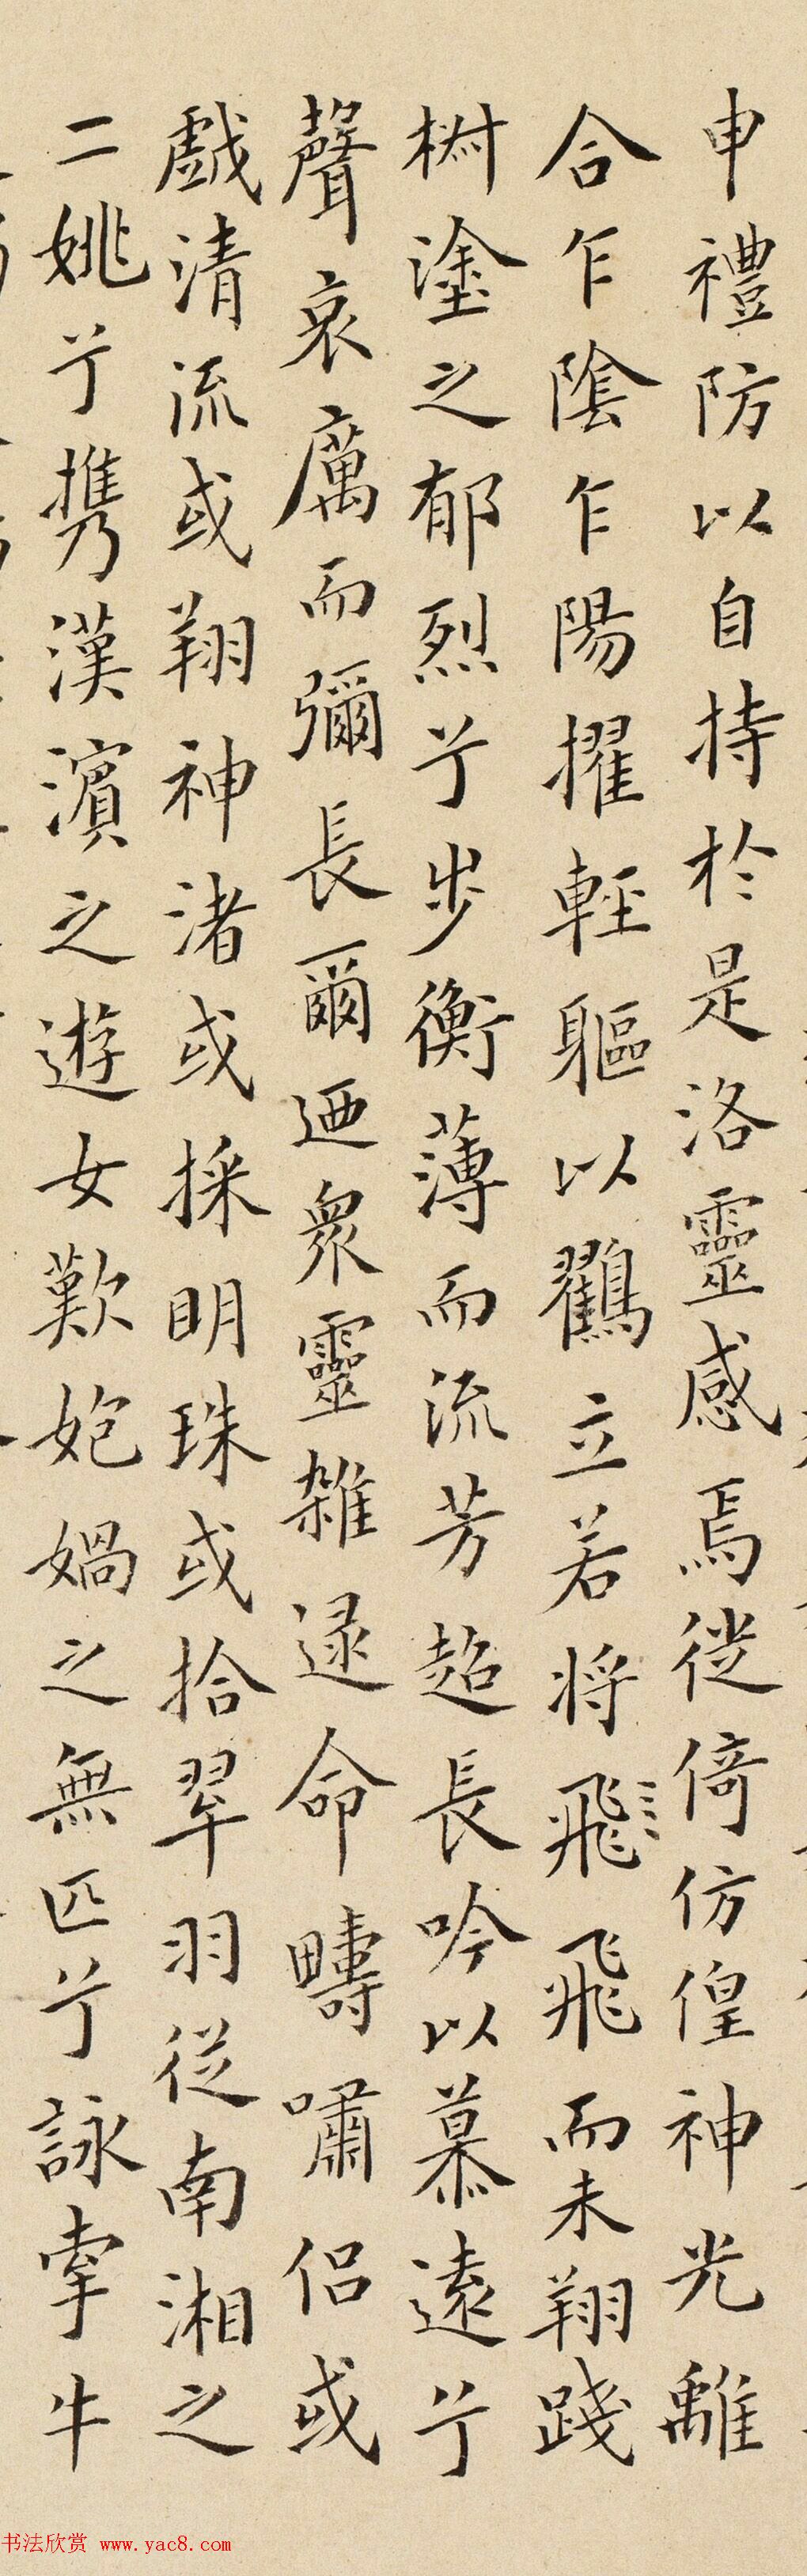 申禮防以自持於是洛靈感焉徙倚仿偟神光離
合乍陰乍陽擢輕軀以鸛立若将飛飛而未翔踐
樹塗之郁烈兮步衡薄而流芳超長吟以慕遠兮
聲哀厲而彌長爾迺眾靈雜逯命疇嘯侣或
戲清流或翔神渚或採明珠或拾翠羽從南湘之
二姚兮携漢濱之遊女歎㚿媧之無匹兮詠牽牛
书法欣赏 www.yac8.com